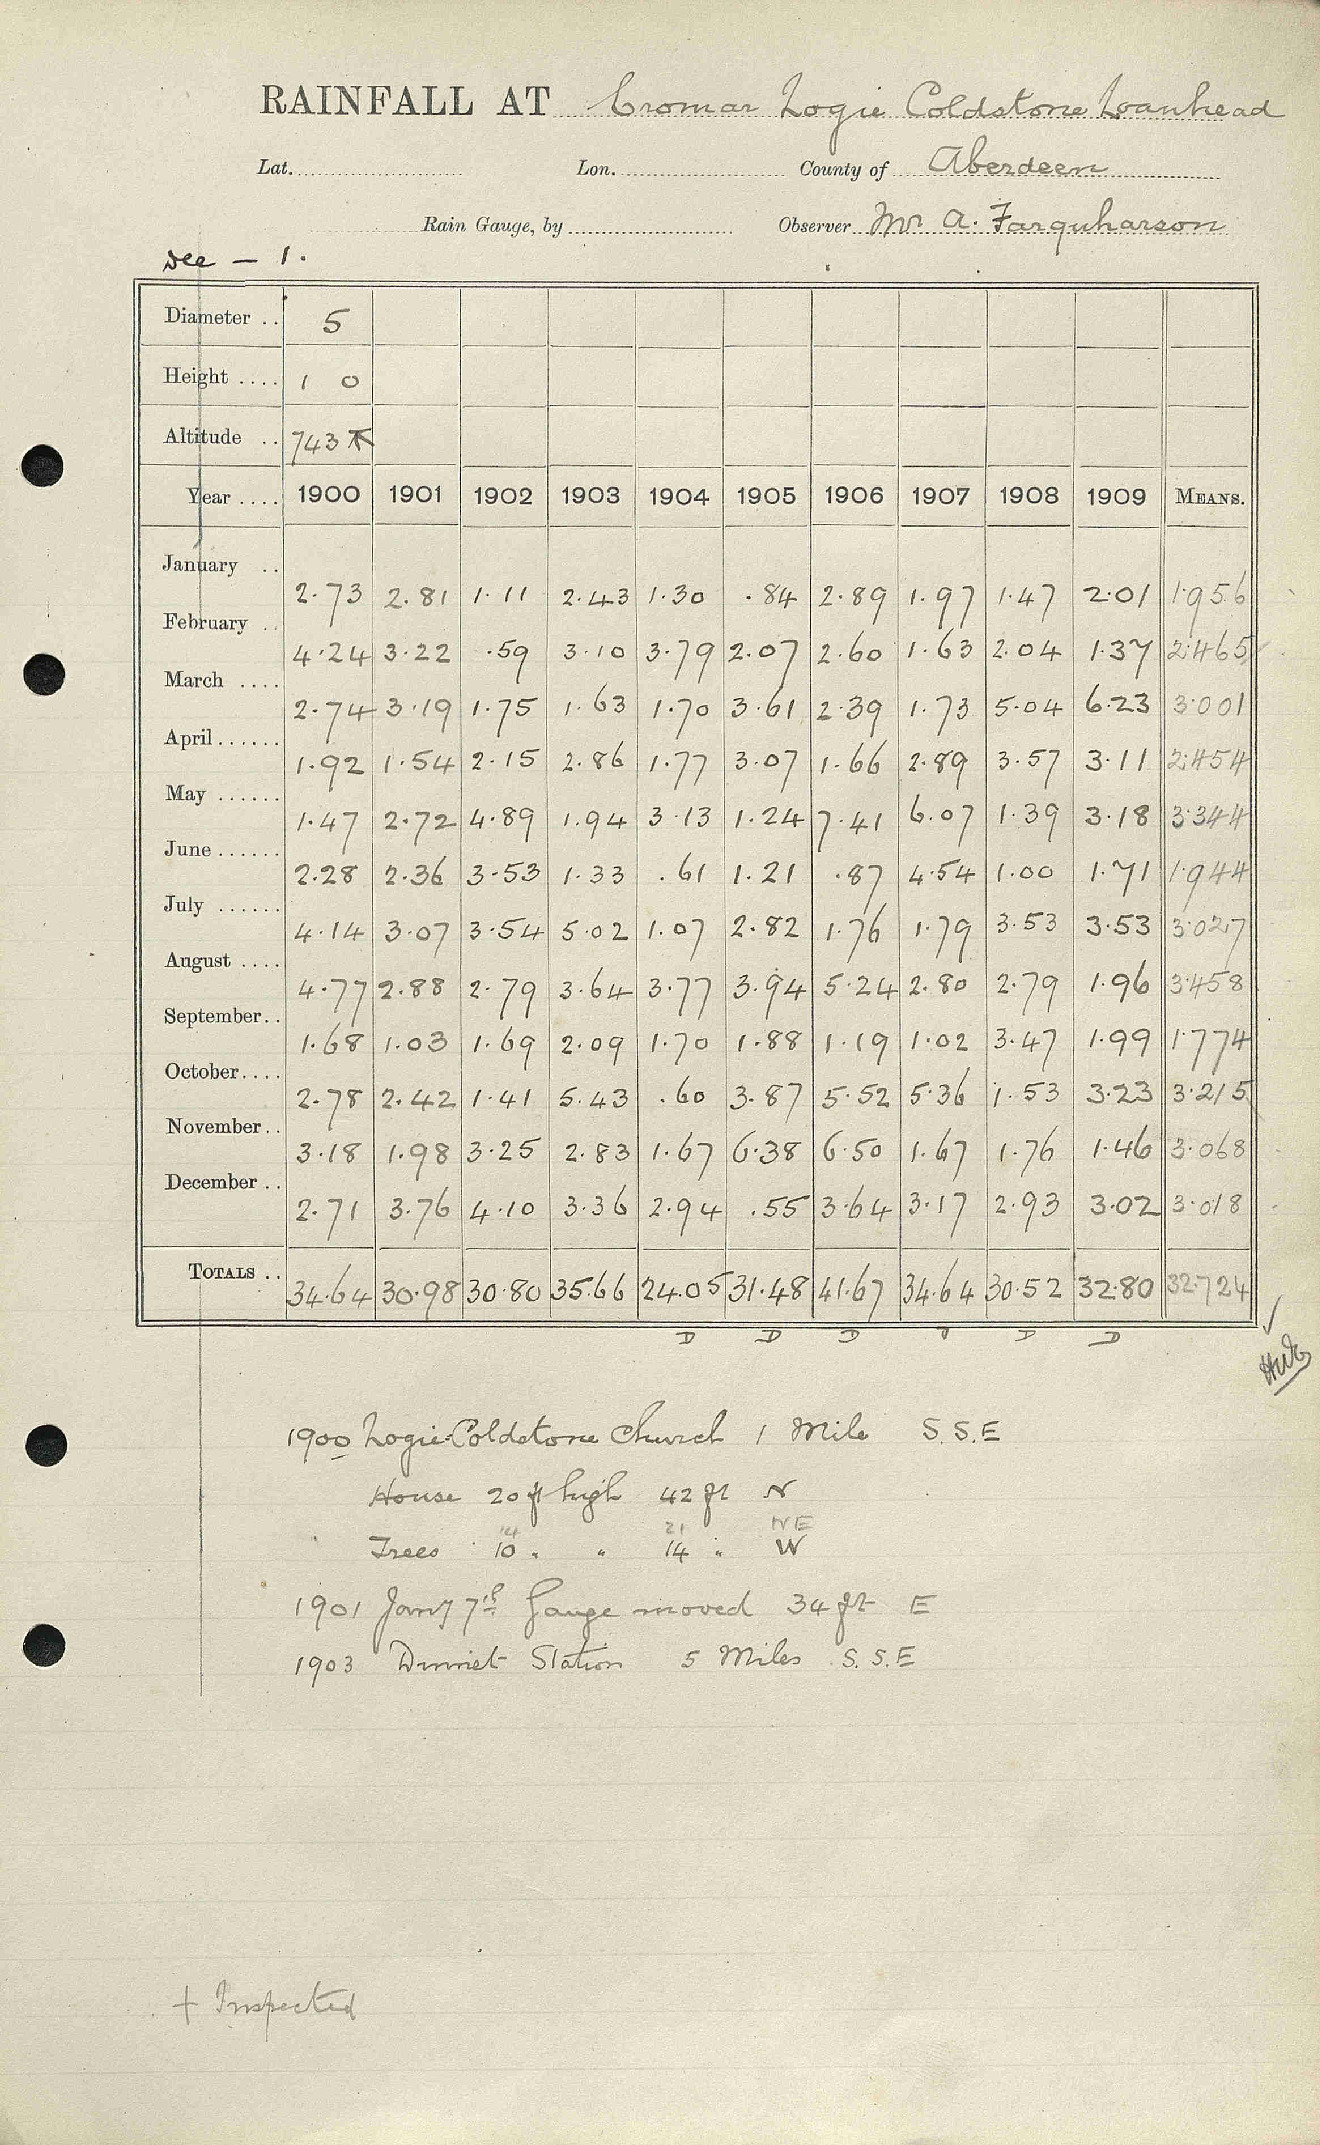 RAINFALL AT Cromar Logie Coldstone Loanhead
Lat. Lon. County of Aberdeen
Rain Gauge, by Observer Mr A. Farquharson
Dee - 1.
Diameter .. 5
Height .... 1 0
Altitude .. 743
Year .... 1900 1901 1902 1903 1904 1905 1906 1907 1908 1909 MEANS.
January .. 2.73 2.81 1.11 2.43 1.30 .84 2.89 1.97 1.47 2.01 1.956
February .. 4.24 3.22 .59 3.10 3.79 2.07 2.60 1.63 2.04 1.37 2.465
March .... 2.74 3.19 1.75 1.63 1.70 3.61 2.39 1.73 5.04 6.23 3.001
April ...... 1.92 1.54 2.15 2.86 1.77 3.07 1.66 2.89 3.57 3.11 2.454
May ...... 1.47 2.72 4.89 1.94 3.13 1.24 7.41 6.07 1.39 3.18 3.344
June ...... 2.28 2.36 3.53 1.33 .61 1.21 .87 4.54 1.00 1.71 1.944
July ...... 4.14 3.07 3.54 5.02 1.07 2.82 1.76 1.79 3.53 3.53 3.027
August .... 4.77 2.88 2.79 3.64 3.77 3.94 5.24 2.80 2.79 1.96 3.458
September .. 1.68 1.03 1.69 2.09 1.70 1.88 1.19 1.02 3.47 1.99 1.774
October .... 2.78 2.42 1.41 5.43 .60 3.87 5.52 5.36 1.53 3.23 3.215
November .. 3.18 1.98 3.25 2.83 1.67 6.38 6.50 1.67 1.76 1.46 3.068
December .. 2.71 3.76 4.10 3.36 2.94 .55 3.64 3.17 2.93 3.02 3.018
TOTALS .. 34.64 30.98 30.80 35.66 24.05 31.48 41.67 34.64 30.52 32.80 32.724
D D D D D D
1900 Logie Coldstone Church 1 Mile S.S.E
House 20 ft high 42 ft N
14 21 NE
Trees 10 " " 14 " W
1901 Jany 7th Gauge moved 34 ft E
1903 Dinnet Station 5 Miles S.S.E
+ Inspected